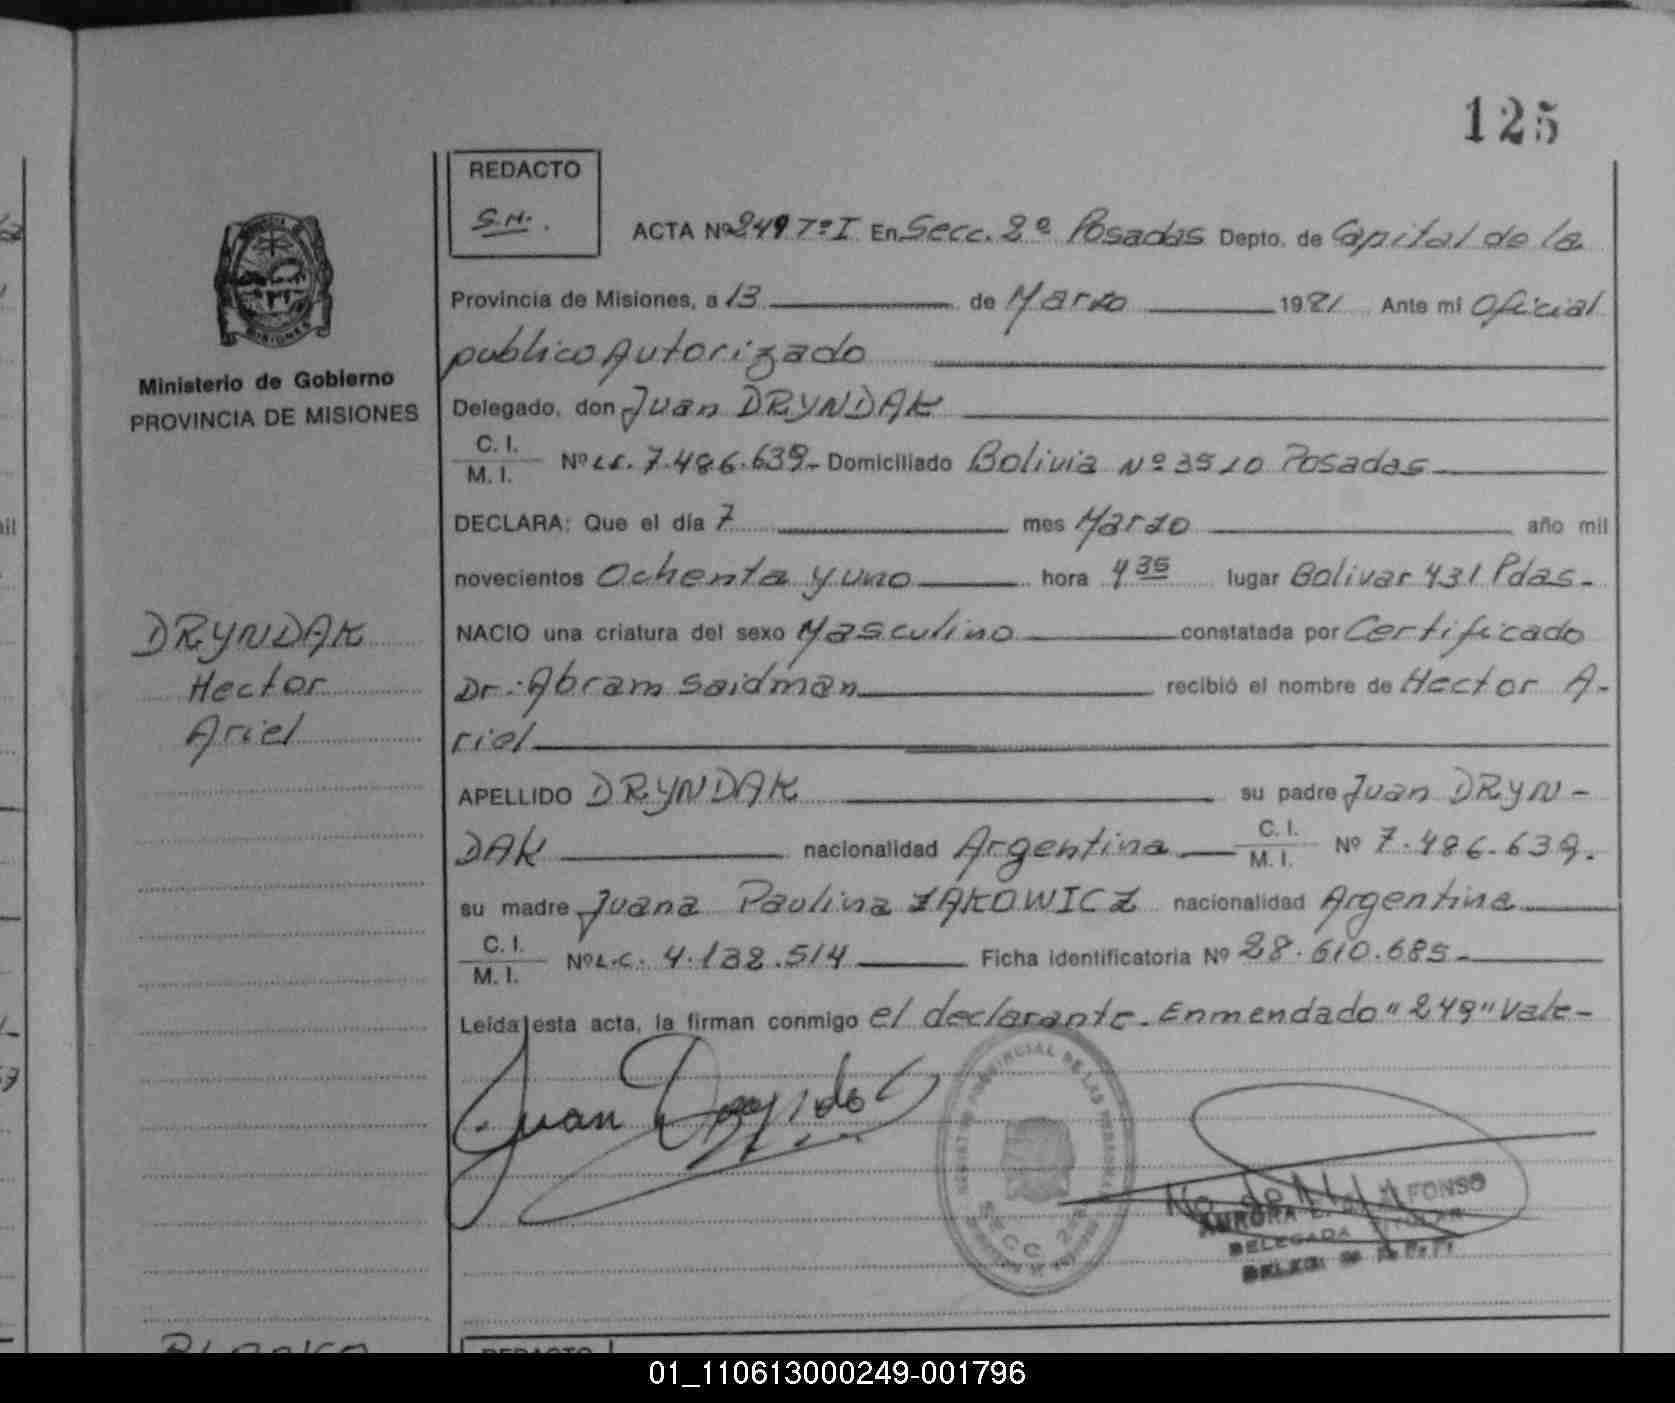 125
REDACTO
S.H.
ACTA Nº 249 Tº I En Secc. 2º Posadas Depto. de Capital de la
Provincia de Misiones, a 13 de Marzo 1981 Ante mi Oficial
publico Autorizado
Delegado, don Juan DRYNDAK
C. I.
M. I. Nº L.E. 7.486.639.- Domiciliado Bolivia Nº 3510 Posadas
DECLARA: Que el día 7 mes Marzo año mil
novecientos Ochenta y uno hora 4 35 lugar Bolivar 431 Pdas.
NACIO una criatura del sexo Masculino constatada por Certificado
Dr. Abram Saidman recibió el nombre de Hector A-
riel
APELLIDO DRYNDAK su padre Juan DRYN-
DAK nacionalidad Argentina C. I. M. I. Nº 7.486.639.
su madre Juana Paulina ZAKOWICZ nacionalidad Argentina
C. I.
M. I. Nº L.C. 4.132.514 Ficha identificatoria Nº 28.610.685.
Leída esta acta, la firman conmigo el declarante. Enmendado "249" Vale-
Juan
SECC. 2
AURORA
DELEGADA TITULAR
Ministerio de Gobierno
PROVINCIA DE MISIONES
MISIONES
DRYNDAK
Hector
Ariel
REDACTO
01_110613000249-001796